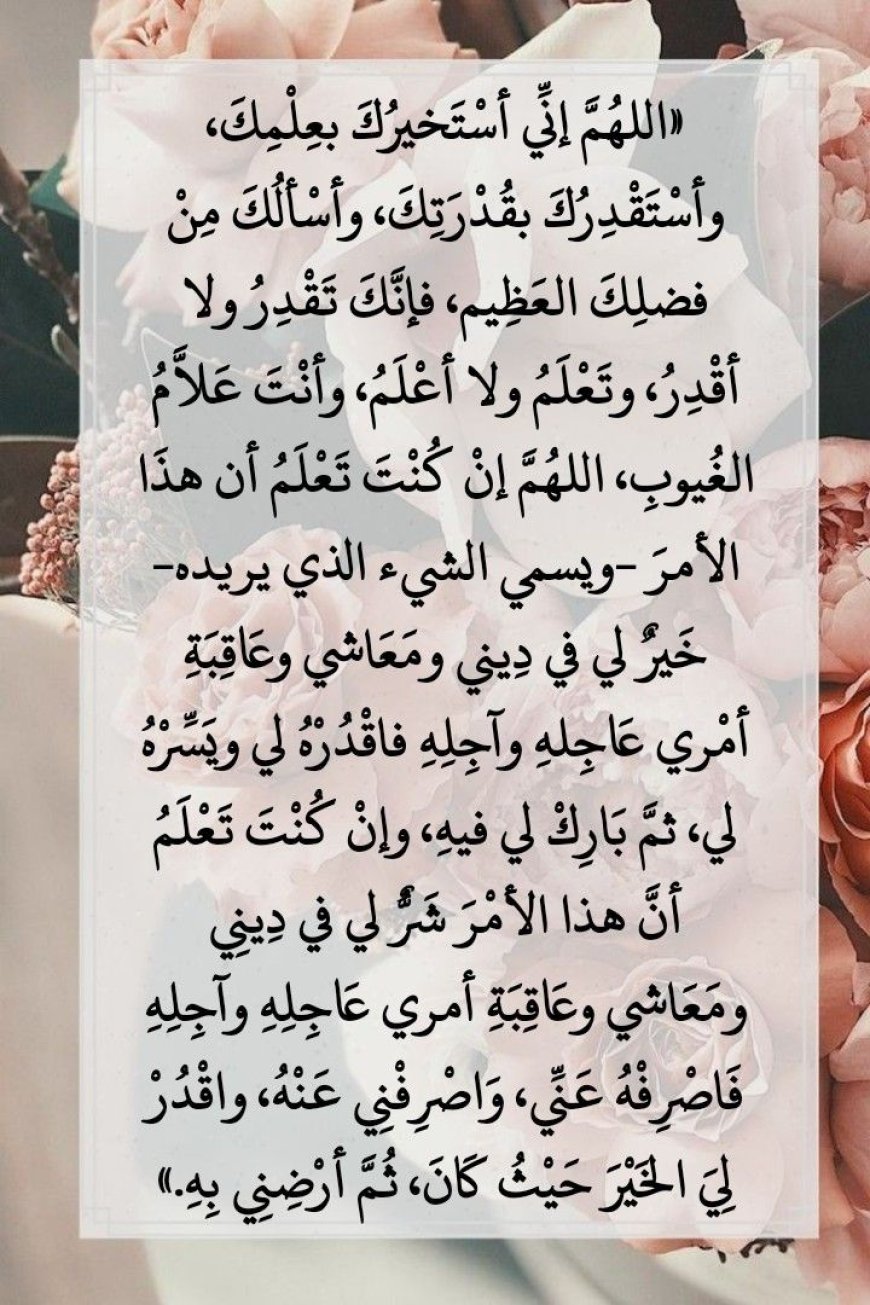 «اللهُمَّ إنِّي أسْتَخيرُكَ بعِلْمِكَ،
وأسْتَقْدِرُكَ بقُدْرَتِكَ، وأسْألُكَ مِنْ
فضلِكَ العَظِيم، فإنَّكَ تَقْدِرُ ولا
أقْدِرُ، وتَعْلَمُ ولا أعْلَمُ، وأنْتَ عَلاَّمُ
الغُيوبِ، اللهُمَّ إنْ كُنْتَ تَعْلَمُ أن هذَا
الأمرَ –ويسمي الشيء الذي يريده–
خَيرٌ لي في دِيني ومَعَاشي وعَاقِبَةِ
أمْري عَاجِلهِ وآجِلِهِ فاقْدُرْهُ لي ويَسِّرْهُ
لي، ثمَّ بَارِكْ لي فيهِ، وإنْ كُنْتَ تَعْلَمُ
أنَّ هذا الأمْرَ شَرٌّ لي في دِينِي
ومَعَاشي وعَاقِبَةِ أمري عَاجِلِهِ وآجِلِهِ
فَاصْرِفْهُ عَنِّي، وَاصْرِفْنِي عَنْهُ، واقْدُرْ
لِيَ الخَيْرَ حَيْثُ كَانَ، ثُمَّ أرْضِنِي بِهِ.»